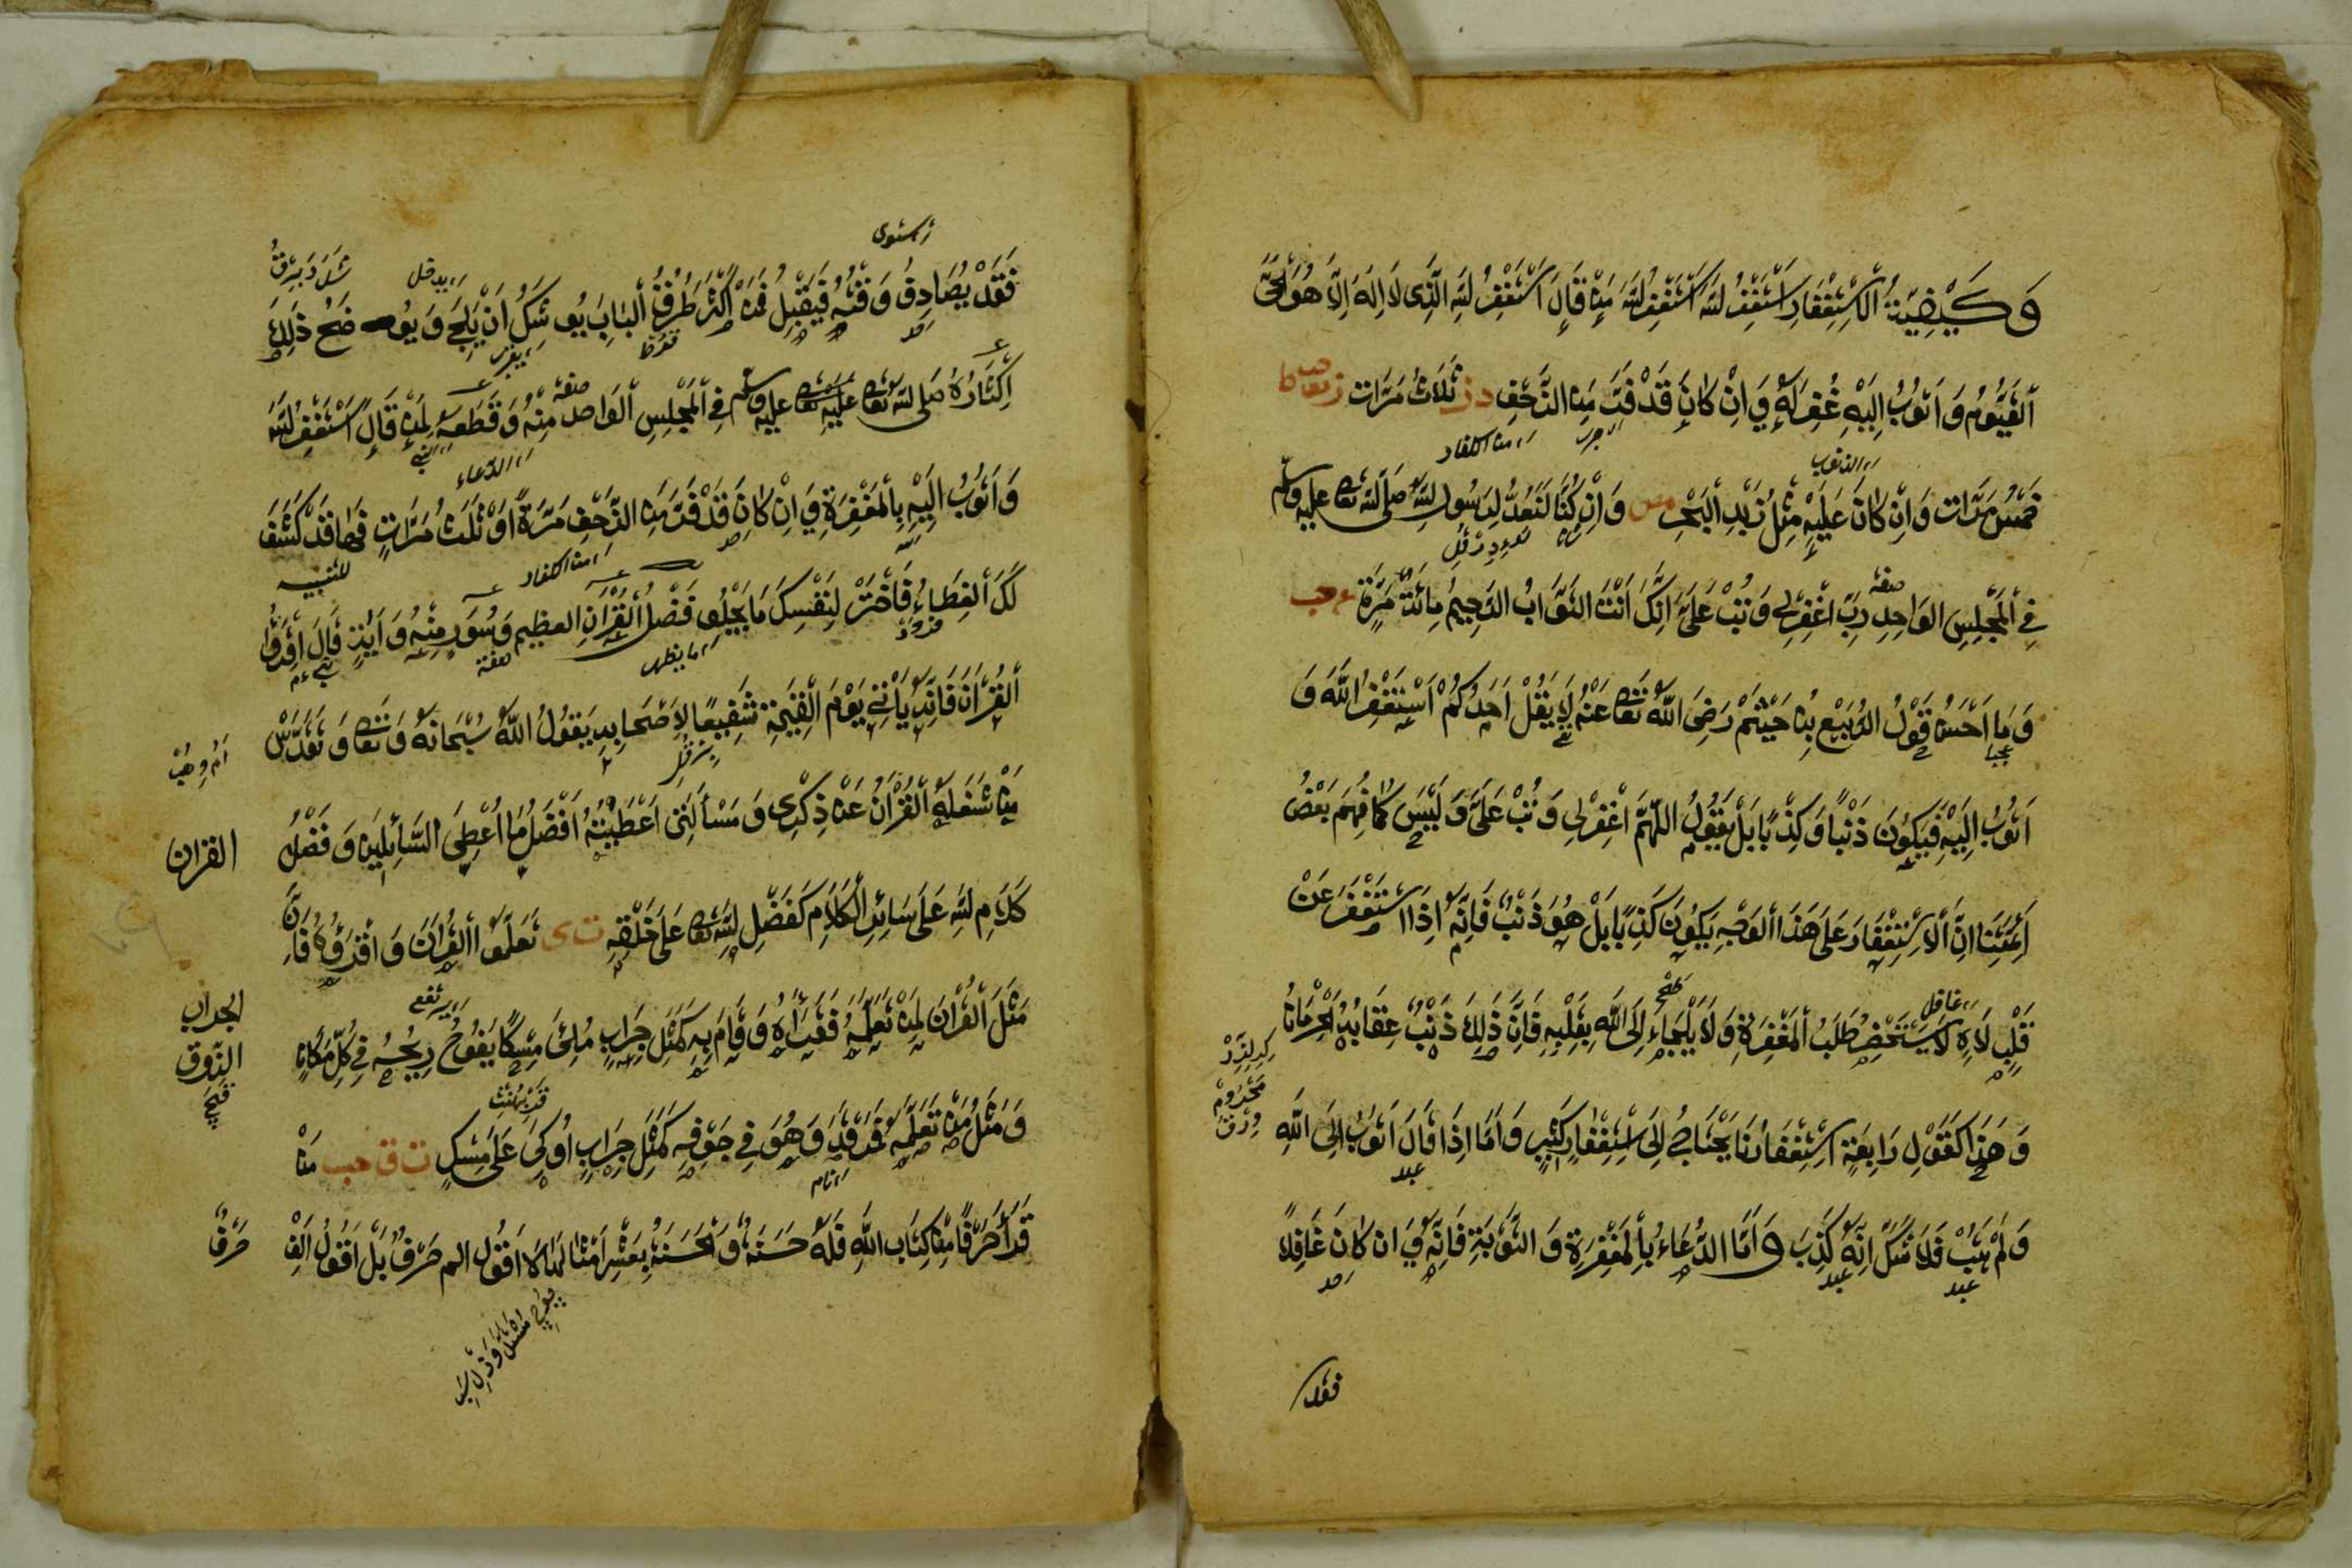 وَكَيْفِيَّةُ الْاِسْتِغْفَارِ اَسْتَغْفِرُ اللّٰهَ اَسْتَغْفِرُ اللّٰهَ مَنْ قَالَ اَسْتَغْفِرُ اللّٰهَ الَّذِى لَا اِلٰهَ اِلَّا هُوَ الْحَىُّ
الْقَيُّومُ وَ اَتُوبُ اِلَيْهِ غُفِرَ لَهُ وَ اِنْ كَانَ قَدْ فَرَّ مِنَ الزَّحْفِ د ز ثَلَاثَ مَرَّات ز
من الكفار
الذنوب
خَمْسَ مَرَّات وَ اِنْ كَانَ عَلَيْهِ مِثْلُ زَبَدِ الْبَحْرِ مص وَ اِنْ كُنَّا لَنَعُدُّ لِرَسُولِ اللّٰهِ صَلَّى اللّٰهُ تعالى عليه وسلم
صفة
فِي الْمَجْلِسِ الْوَاحِدِ رَبِّ اغْفِرْ لِى وَ تُبْ عَلَىَّ اِنَّكَ اَنْتَ التَّوَّابُ الرَّحِيمُ مِائَةَ مَرَّةٍ عه حب
وَ مَا اَحْسَنَ قَوْلَ الرَّبِيعِ بْنِ خَيْثَمْ رَضِىَ اللّٰهُ تَعَالٰى عَنْهُ لَا يَقُلْ اَحَدُكُمْ اَسْتَغْفِرُ اللّٰهَ وَ
اَتُوبُ اِلَيْهِ فَيَكُونَ ذَنْبًا وَ كِذْبًا بَلْ يَقُولُ اللّٰهُمَّ اغْفِرْ لِى وَ تُبْ عَلَىَّ وَ لَيْسَ كَمَا فَهِمَ بَعْضُ
اَئِمَّتِنَا اِنَّ الْاِسْتِغْفَارَ عَلٰى هٰذَا الْوَجْهِ يَكُونُ كَذِبًا بَلْ هُوَ ذَنْبٌ فَاِنَّهُ اِذَا اسْتَغْفَرَ عَنْ
غافل
قَلْبٍ لَاهٍ لَا يَسْتَحْضِرُ طَلَبَ الْمَغْفِرَةِ وَ لَا يَلْجَاءُ اِلَى اللّٰهِ بِقَلْبِهِ فَاِنَّ ذٰلِكَ ذَنْبٌ عِقَابُهُ الْحِرْمَانُ
وَ هٰذَا كَقَوْلِ رَابِعَةَ اِسْتِغْفَارُنَا يَحْتَاجُ اِلَى اسْتِغْفَارٍ كَثِيرٍ وَ اَمَّا اِذَا قَالَ اَتُوبُ اِلَى اللّٰهِ
عبد
وَ لَمْ يَتُبْ فَلَا شَكَّ اَنَّهُ كَذِبَ وَ اَمَّا الدُّعَاءُ بِالْمَغْفِرَةِ وَ التَّوْبَةِ فَاِنَّهُ وَ اِنْ كَانَ غَافِلًا
عبد
عبد
فقد
يدخل
فَقَدْ يُصَادِفُ وَقْتَهُ فَيُقْبِلُ فَمَنْ اَكْثَرَ طَرْقَ الْبَابِ يُوشِكُ اَنْ يَلِجَ وَ يُوضِحُ ذٰلِكَ
اِكْثَارُهُ صَلَّى اللّٰهُ تعالى عَلَيْهِ وسلم فِي الْمَجْلِسِ الْوَاحِدِ مِنْهُ وَ قَطْعُهُ لِمَنْ قَالَ اَسْتَغْفِرُ اللّٰهَ
صفة
الدعاء
وَ اَتُوبُ اِلَيْهِ بِالْمَغْفِرَةِ وَ اِنْ كَانَ قَدْ فَرَّ مِنَ الزَّحْفِ مَرَّةً اَوْ ثَلٰثَ مَرَّاتٍ فَهَا قَدْ كَشَفَ
من الكفار
للتنبيه
لَكَ الْغِطَاءُ فَاخْتَرْ لِنَفْسِكَ مَا يَحْلُو فَضْلُ الْقُرْاٰنِ العظيم وَ سُوَرٍ مِنْهُ وَ اٰيَاتٍ قَالَ اقْرَؤُا
ما يظهر
صفة
الْقُرْاٰنَ فَاِنَّهُ يَأْتِى يَوْمَ الْقِيٰمَةِ شَفِيعًا لِاَصْحَابِهِ يَقُولُ اللّٰهُ سُبْحَانَهُ وَ تَعَالٰى وَ تَقَدَّسَ
مَنْ شَغَلَهُ الْقُرْاٰنُ عَنْ ذِكْرِى وَ مَسْأَلَتِى اَعْطَيْتُهُ اَفْضَلَ مَا اُعْطِىَ السَّائِلِينَ وَ فَضْلُ
القران
كَلَامِ اللّٰهِ عَلٰى سَائِرِ الْكَلَامِ كَفَضْلِ اللّٰهِ تعالى عَلٰى خَلْقِهِ ت ى تَعَلَّمُوا الْقُرْاٰنَ وَ اقْرَؤُهُ فَاِنَّ
يرتفع
مَثَلَ الْقُرْاٰنِ لِمَنْ تَعَلَّمَهُ فَقَرَأَهُ وَ قَامَ بِهِ كَمَثَلِ جِرَابٍ مُلِئَ مِسْكًا يَفُوحُ رِيحُهُ فِى كُلِّ مَكَانٍ
الجراب
وَ مَثَلُ مَنْ تَعَلَّمَهُ فَرَقَدَ وَ هُوَ فِى جَوْفِهِ كَمَثَلِ جِرَابٍ اُوكِىَ عَلٰى مِسْكٍ ت ق حب مَنْ
نام
قَرَأَ حَرْفًا مِنْ كِتَابِ اللّٰهِ فَلَهُ حَسَنَةٌ وَ الْحَسَنَةُ بِعَشْرِ اَمْثَالِهَا لَا اَقُولُ الم حَرْفٌ بَلْ اَقُولُ اَلِفٌ
حَرْفٌ